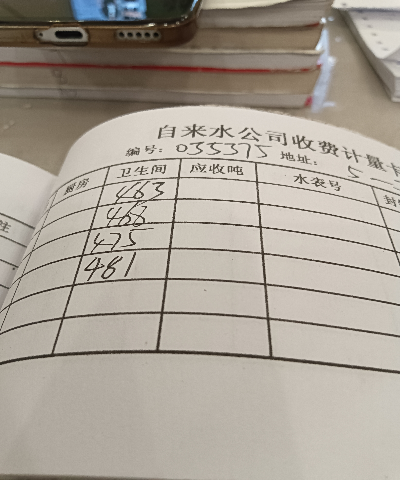 自来水公司收费计量
编号: 035375 地址: 5
厨房 卫生间 应收吨 水表号
463
468
475
481